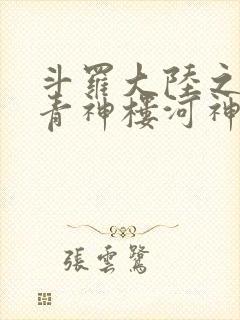 斗羅大陸之
青神樓河神
張雲鷺